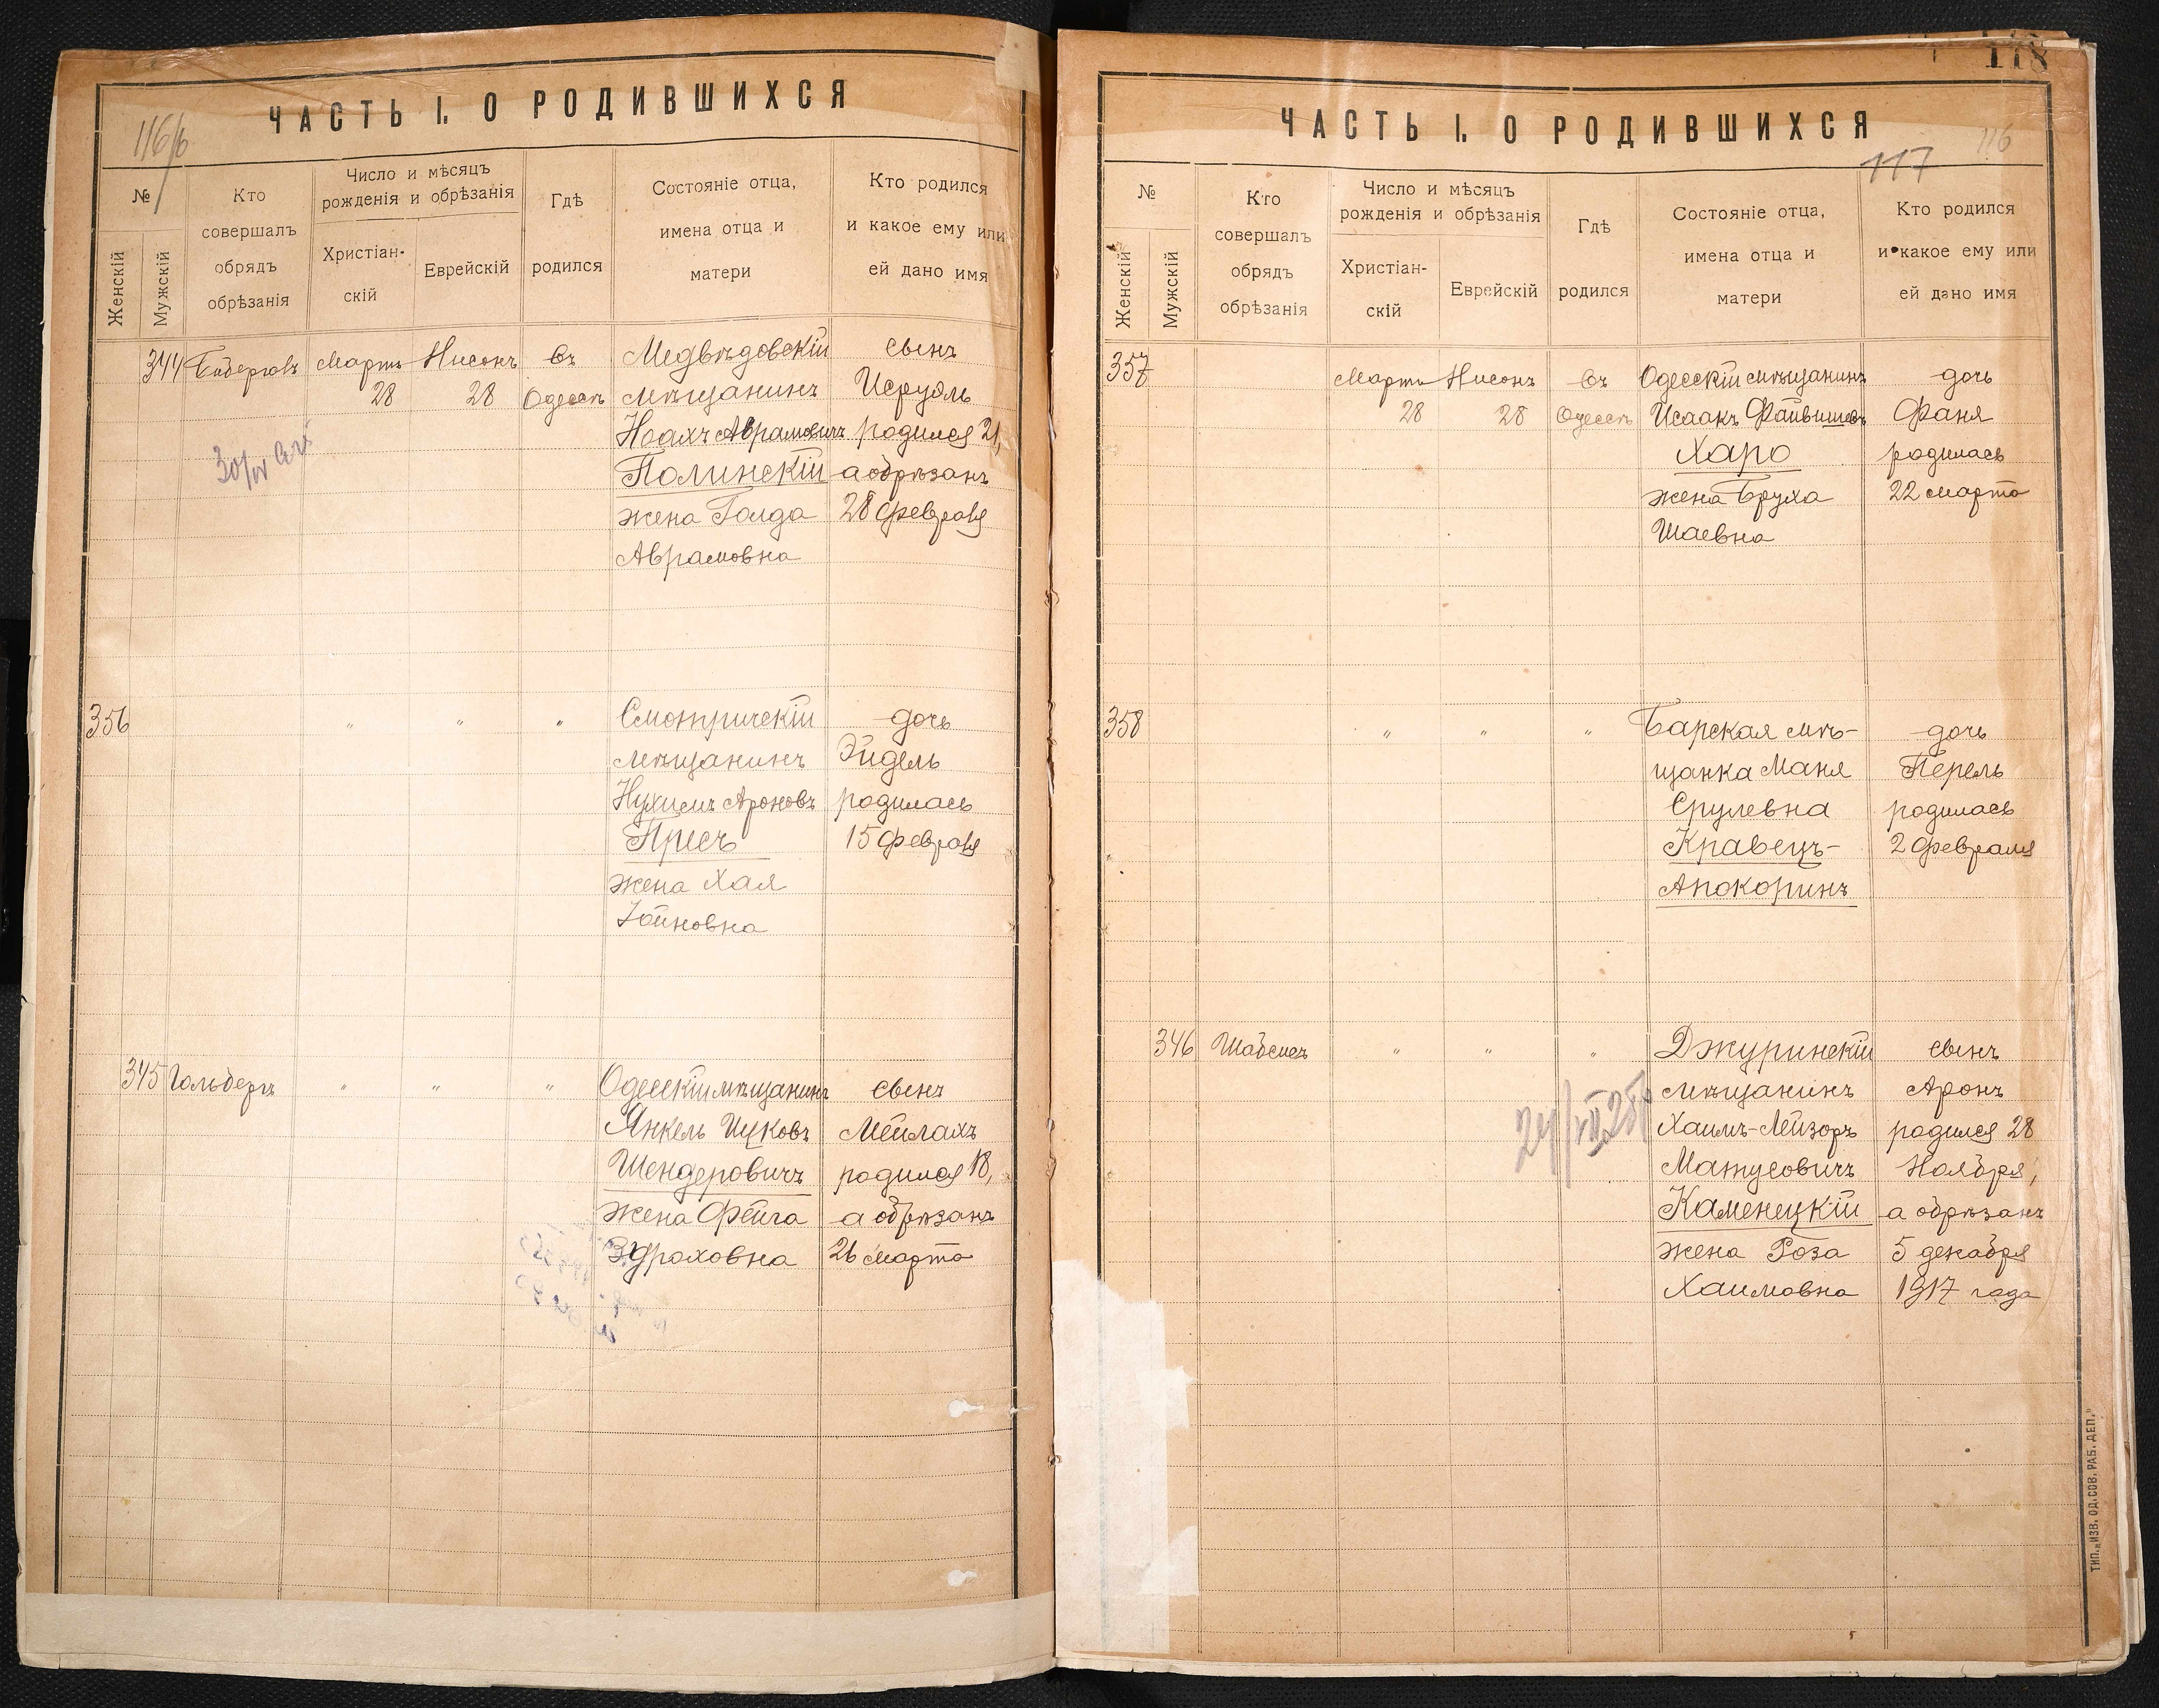 ЧАСТЬ I. О РОДИВШИХСЯ
116/б
№
Женскій
Мужскій
Кто
совершалъ
обрядъ
обрѣзанія
Число и мѣсяцъ
рожденія и обрѣзанія
Христіан-
скій
Еврейскій
Гдѣ
родился
Состояніе отца,
имена отца и
матери
Кто родился
и какое ему или
ей дано имя
344 Мартъ Нисонъ Въ Медвѣдовскій сынъ
28 28 Одессѣ мѣщанинъ Исруэль
Ноахъ Аврамовичъ родился 21,
Полинскій а обрѣзанъ
жена Голда 28 февраля
Аврамовна
356 " " " Смотричскій дочь
мѣщанинъ Эйдель
Нухимъ Ароновъ родилась
Присъ 15 февраля
жена Хая
Іойновна
345 Гольбергъ " " " Одесскій мѣщанинъ сынъ
Янкель Ицковъ Мейлахъ
Шендеровичъ родился 18,
жена Фейга а обрѣзанъ
Здраховна 26 марта
118
ЧАСТЬ I. О РОДИВШИХСЯ
117 116
№
Женскій
Мужскій
Кто
совершалъ
обрядъ
обрѣзанія
Число и мѣсяцъ
рожденія и обрѣзанія
Христіан-
скій
Еврейскій
Гдѣ
родился
Состояніе отца,
имена отца и
матери
Кто родился
и какое ему или
ей дано имя
357 Мартъ Нисонъ Въ Одесскій мѣщанинъ дочь
28 28 Одессѣ Исаакъ Файвишевъ Фаня
Харо родилась
жена Бруха 22 марта
Шаевна
358 " " " Барская мѣ- дочь
щанка Маня Перель
Срулевна родилась
Кравецъ- 2 февраля
Апокоринъ
346 Шабсисъ " " " Джуринскій сынъ
мѣщанинъ Аронъ
Хаимъ-Лейзоръ родился 28
Матусовичъ Ноября,
Каменецкій а обрѣзанъ
жена Роза 5 декабря
Хаимовна 1917 года
ТИП. „ИЗВ. ОД. СОВ. РАБ. ДЕП."